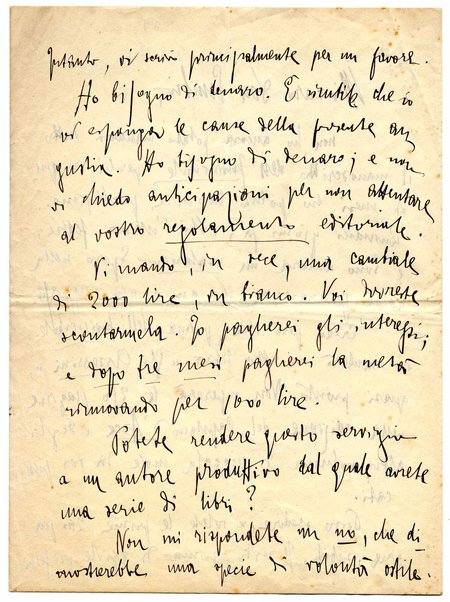 Intanto, vi scrivo principalmente per un favore.
Ho bisogno di denaro. È inutile che io
vi esponga le cause della presente an
gustia. Ho bisogno di denaro; e non
vi chiedo anticipazioni per non attentare
al vostro regolamento editoriale.
Vi mando, in vece, una cambiale
di 2000 lire, in bianco. Voi dovreste
scontarmela. Io pagherei gli interessi;
e dopo tre mesi pagherei la metà
rinnovando per 1000 lire.
Potete rendere questo servigio
a un autore produttivo dal quale avrete
una serie di libri?
Non mi rispondete un no, che di
mostrerebbe una specie di volontà ostile.